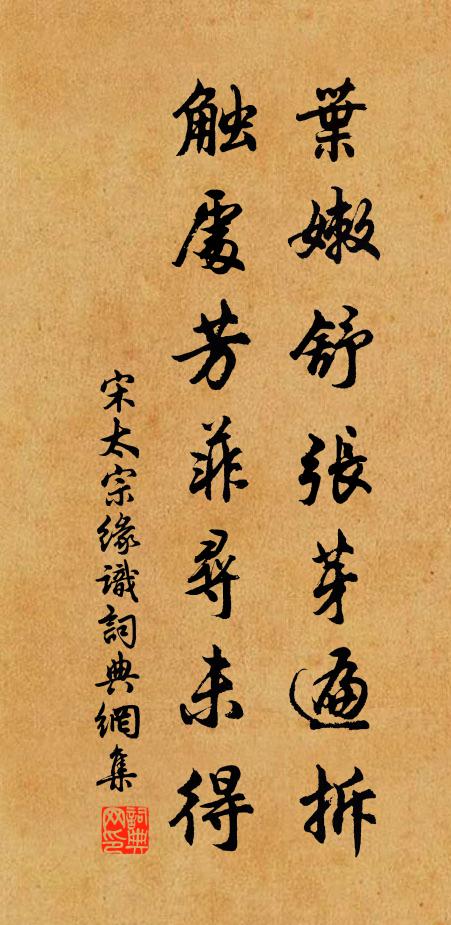 葉嫩舒張芽遍拆
触處芳菲尋未得
宋太宗緣識詞典網集
詞典网印